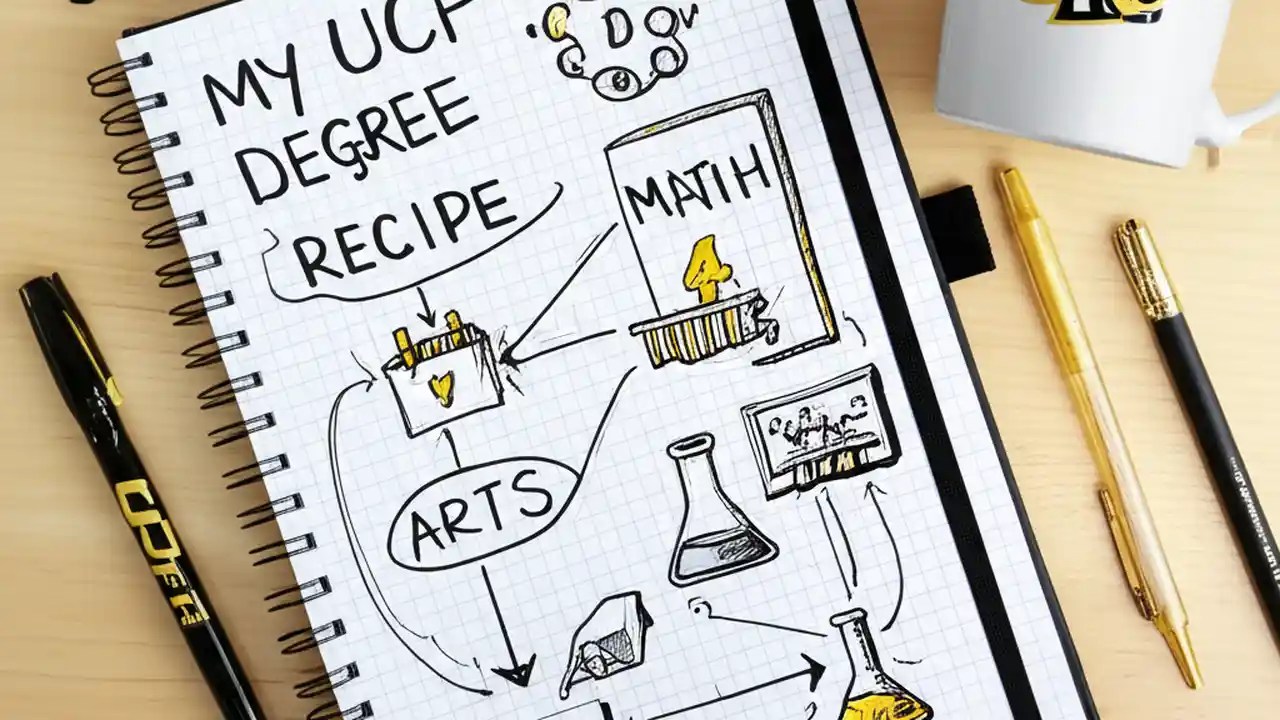 MY UCF
DEGREE
RECIPE
D
MATH
ARTS